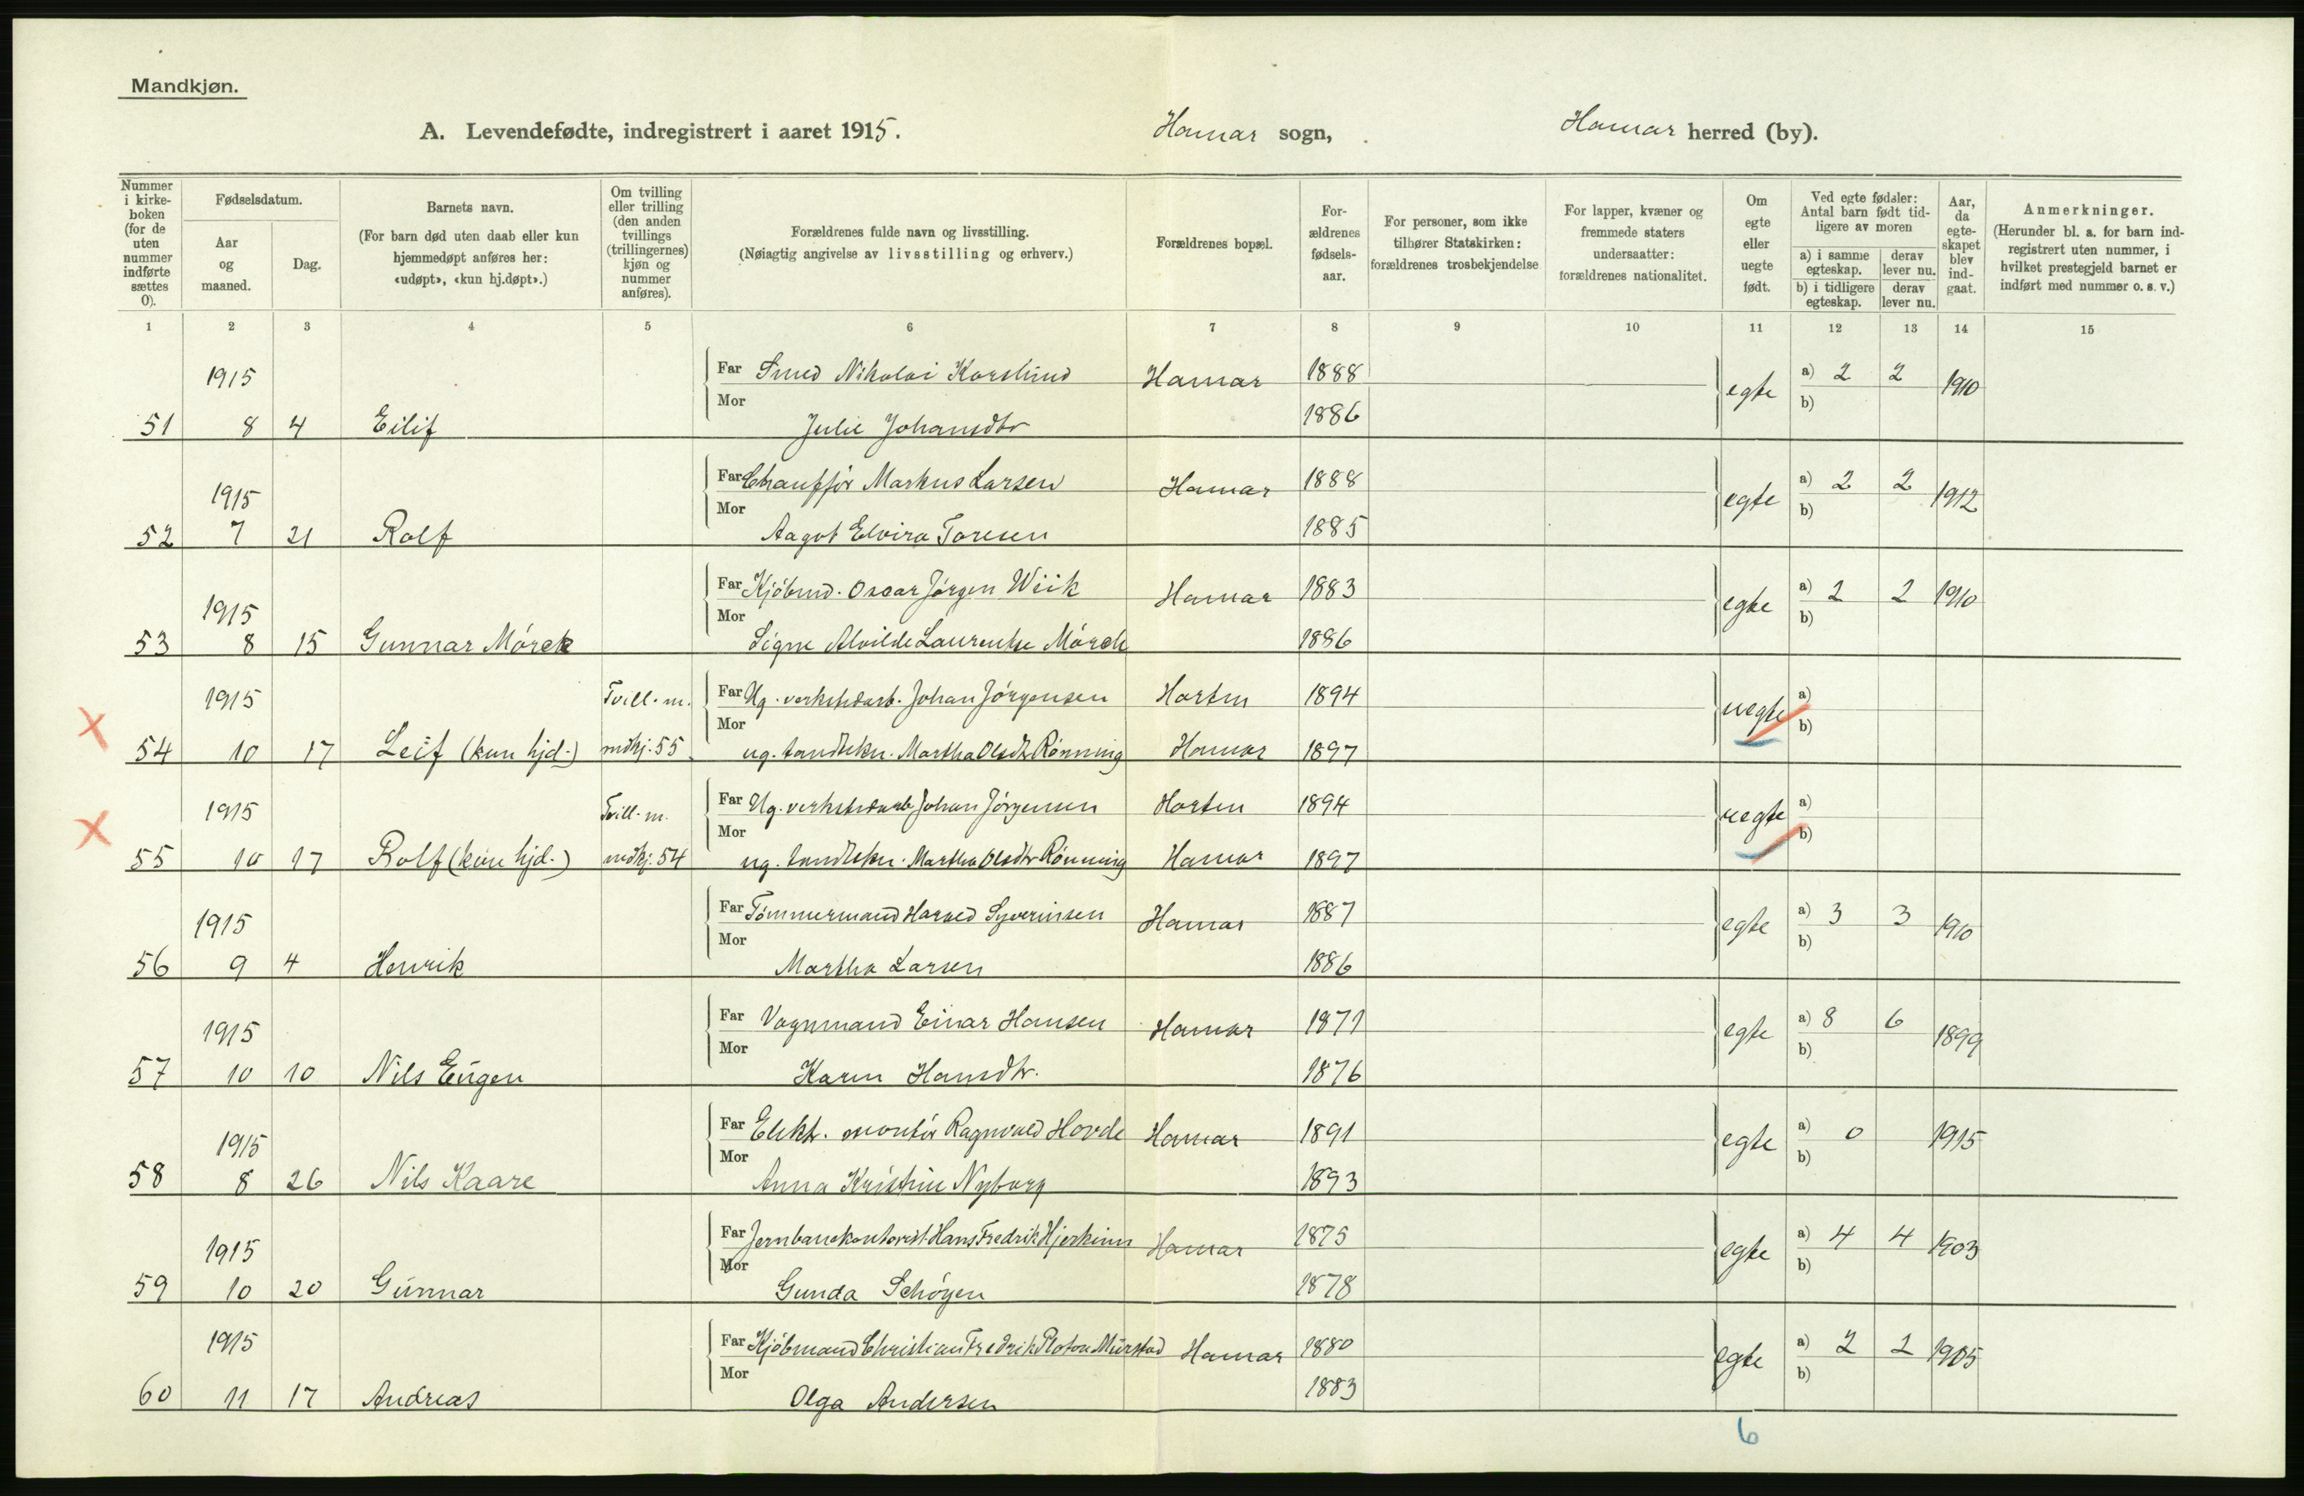 Mandkjøn.
A. Levendefødte, indregistrert i aaret 1915. Hamar sogn, Hamar herred (by).
Nummer i kirke-boken (for de uten nummer indførte sættes 0).
Fødselsdatum.
Aar og maaned.
Dag.
Barnets navn.
(For barn død uten daab eller kun hjemmedøpt anføres her: «udøpt», «kun hj.døpt».)
Om tvilling eller trilling (den anden tvillings (trillingernes) kjøn og nummer anføres).
Forældrenes fulde navn og livsstilling.
(Nøiagtig angivelse av livsstilling og erhverv.)
Forældrenes bopæl.
For-ældrenes fødsels-aar.
For personer, som ikke tilhører Statskirken: forældrenes trosbekjendelse
For lapper, kvæner og fremmede staters undersaatter: forældrenes nationalitet.
Om egte eller uegte født.
Ved egte fødsler: Antal barn født tid-ligere av moren
a) i samme egteskap. derav lever nu.
b) i tidligere egteskap. derav lever nu.
Aar, da egte-skapet blev ind-gaat.
Anmerkninger.
(Herunder bl. a. for barn ind-registrert uten nummer, i hvilket prestegjeld barnet er indført med nummer o. s. v.)
1 2 3 4 5 6 7 8 9 10 11 12 13 14 15
1915 Far Smed Nikolai Korslund Hamar 1888 egte a) 2 2 1910
Mor b)
51 8 4 Eilif Julie Johansdtr 1886
1915 Far Chauffør Markus Larsen Hamar 1888 egte a) 2 2 1912
Mor b)
52 7 21 Rolf Aagot Elvira Toresen 1885
1915 Far Kjøbmd. Oscar Jørgen Wiik Hamar 1883 egte a) 2 2 1910
Mor b)
53 8 15 Gunnar Mörck Signe Alvilde Laurentse Mörch 1886
1915 Tvill. m. Far Ug. verkstedarb. Johan Jörgensen Horten 1894 uegte a)
Mor b)
54 10 17 Leif (kun hjd.) mdkj. 55. ug. tandtekn. Martha Olsdtr Rönning Hamar 1897
1915 Tvill. m. Far Ug. verkstedarb Johan Jörgensen Horten 1894 uegte a)
Mor b)
55 10 17 Rolf (kun hjd.) mdkj. 54 ug. tandtekn. Martha Olsdtr Rönning Hamar 1897
1915 Far Tømmermand Harald Syverinsen Hamar 1887 egte a) 3 3 1910
Mor b)
56 9 4 Henrik Martha Larsen 1886
1915 Far Vognmand Einar Hansen Hamar 1871 egte a) 8 6 1899
Mor b)
57 10 10 Nils Eugen Karen Hansdtr. 1876
1915 Far Elektr. montör Ragnvald Hovde Hamar 1891 egte a) 0 1915
Mor b)
58 8 26 Nils Kaare Anna Kristine Nyborg 1893
1915 Far Jernbanekontorist Hans Fredrik Hjerkinn Hamar 1875 egte a) 4 4 1903
Mor b)
59 10 20 Gunnar Gunda Schöyen 1878
1915 Far Kjöbmand Christian Fredrik Platou Mürstad Hamar 1880 egte a) 2 2 1905
Mor b)
60 11 17 Andreas Olga Andersen 1883
6